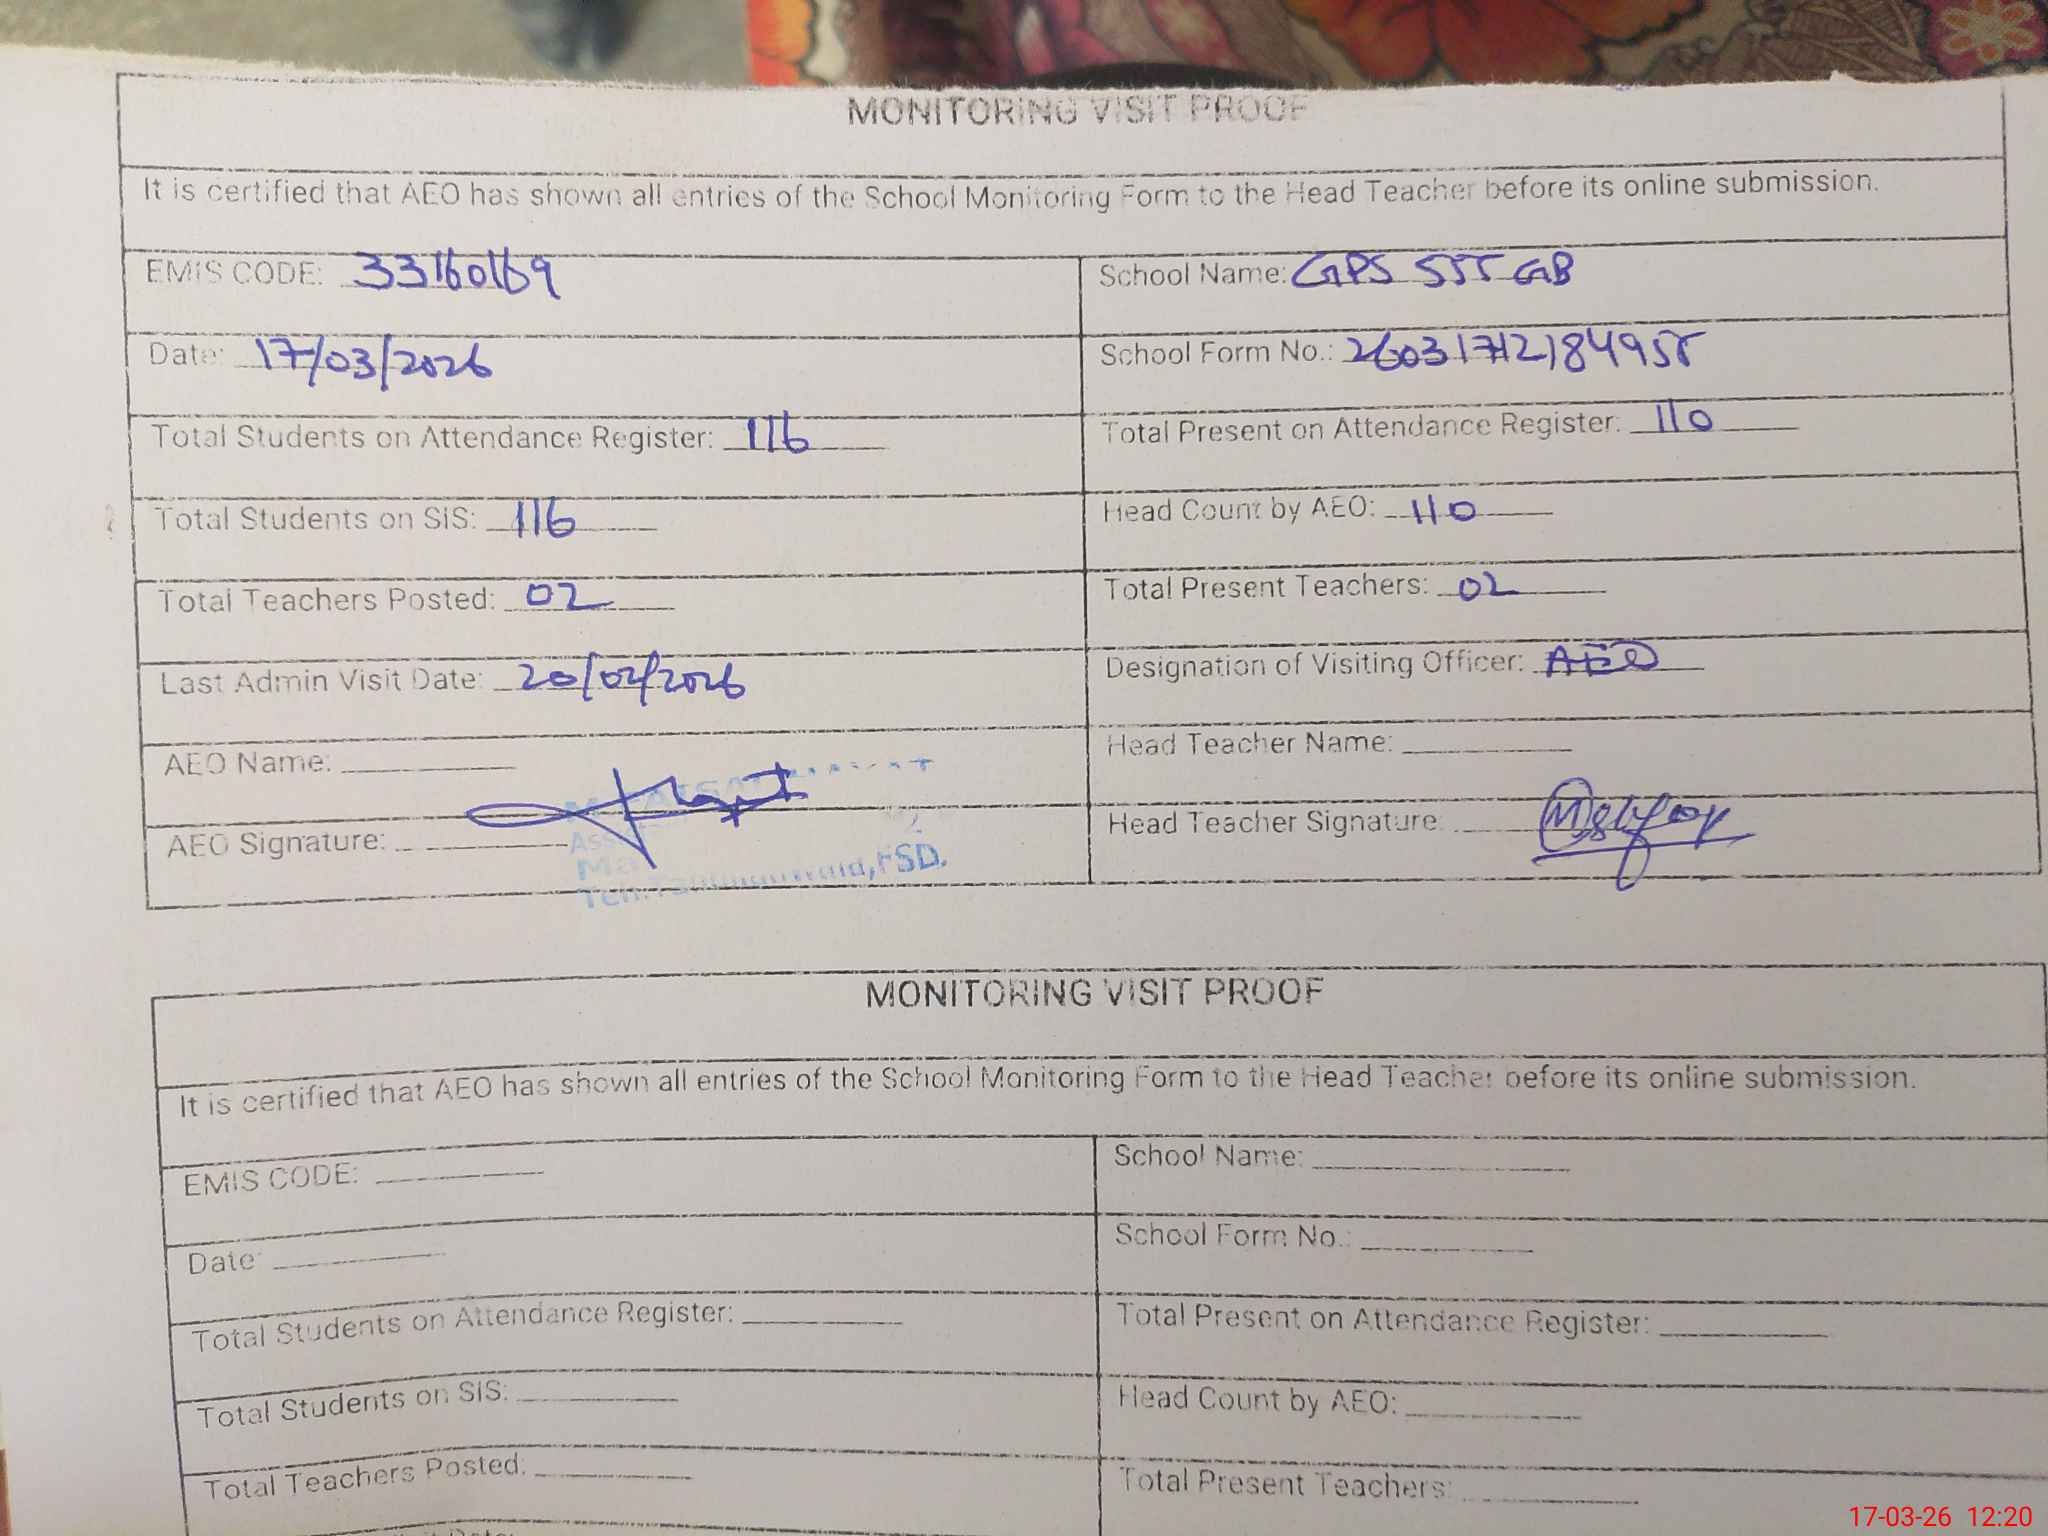 MONITORING VISIT PROOF
It is certified that AEO has shown all entries of the School Monitoring Form to the Head Teacher before its online submission.
EMIS CODE: 33160169 School Name: GPS 555 GB
Date: 17/03/2026 School Form No.: 26031712184955
Total Students on Attendance Register: 116 Total Present on Attendance Register: 110
Total Students on SIS: 116 Head Count by AEO: 110
Total Teachers Posted: 02 Total Present Teachers: 02
Last Admin Visit Date: 20/02/2026 Designation of Visiting Officer: AEO
AEO Name: Head Teacher Name:
AEO Signature: Head Teacher Signature:
FSD.
MONITORING VISIT PROOF
It is certified that AEO has shown all entries of the School Monitoring Form to the Head Teacher before its online submission.
EMIS CODE: School Name:
Date: School Form No.:
Total Students on Attendance Register: Total Present on Attendance Register:
Total Students on SIS: Head Count by AEO:
Total Teachers Posted: Total Present Teachers:
17-03-26 12:20